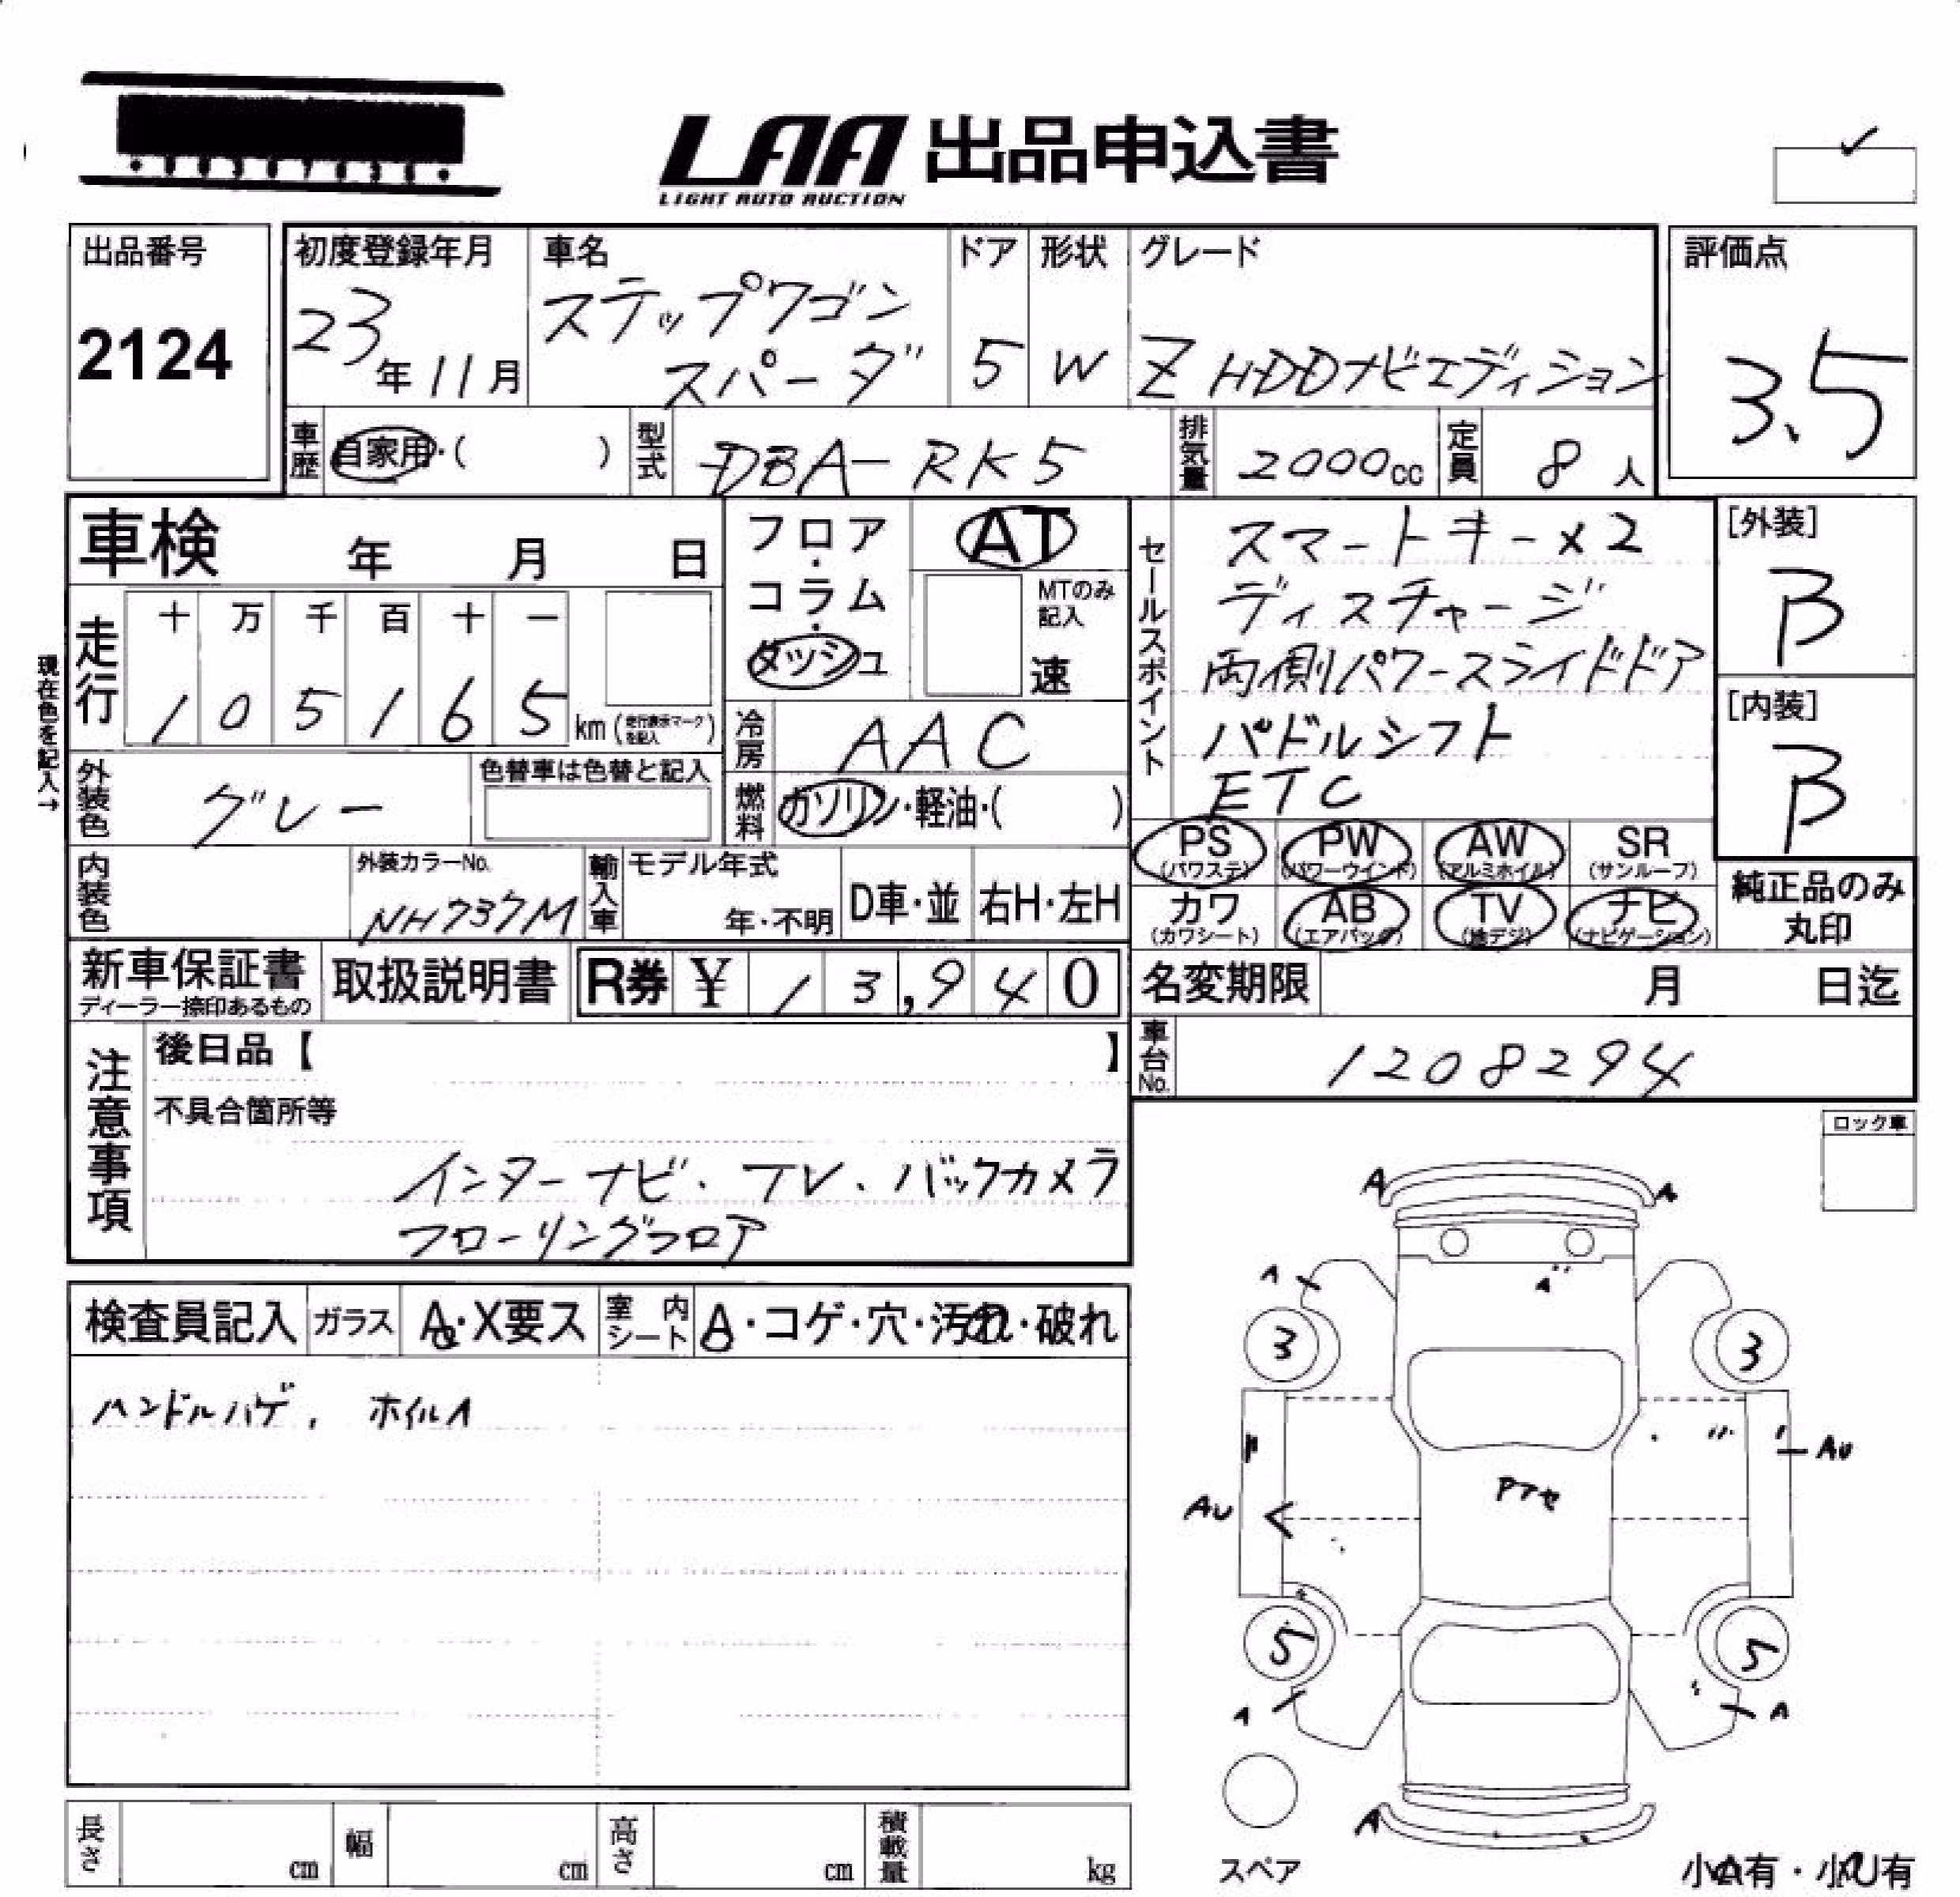 LAA 出品申込書
LIGHT AUTO AUCTION
出品番号
2124
初度登録年月
23年11月
車名
ステップワゴン
スパーダ
ドア
5
形状
W
グレード
Z HDDナビエディション
評価点
3.5
車歴
自家用・( )
型式
DBA-RK5
排気量
2000cc
定員
8人
車検 年 月 日
フロア・コラム・ダッシュ
AT
MTのみ記入
速
セールスポイント
スマートキー×2
ディスチャージ
両側パワースライドドア
パドルシフト
ETC
[外装]
B
[内装]
B
現在色を記入→
走行
十 万 千 百 十 一
1 0 5 1 6 5 km (走行表示マークを記入)
冷房
AAC
外装色
グレー
色替車は色替と記入
燃料
ガソリン・軽油・( )
内装色
外装カラーNo.
NH737M
輸入車
モデル年式
年・不明
D車・並
右H・左H
PS (パワステ)
PW (パワーウインド)
AW (アルミホイル)
SR (サンルーフ)
カワ (カワシート)
AB (エアバッグ)
TV (地デジ)
ナビ (ナビゲーション)
純正品のみ丸印
新車保証書
ディーラー捺印あるもの
取扱説明書
R券 ¥ 13,940
名変期限 月 日迄
車台No.
1208294
注意事項
後日品【 】
不具合箇所等
インターナビ、TV、バックカメラ
フローリングフロア
ロック車
検査員記入
ガラス
A・X要ス
室内シート
A・コゲ・穴・汚れ・破れ
ハンドルハゲ, ホイルA
A A
A A
3 3
AU
Pアセ
AU
5 5
A A
A
スペア
小A有・小U有
長さ cm
幅 cm
高さ cm
積載量 kg